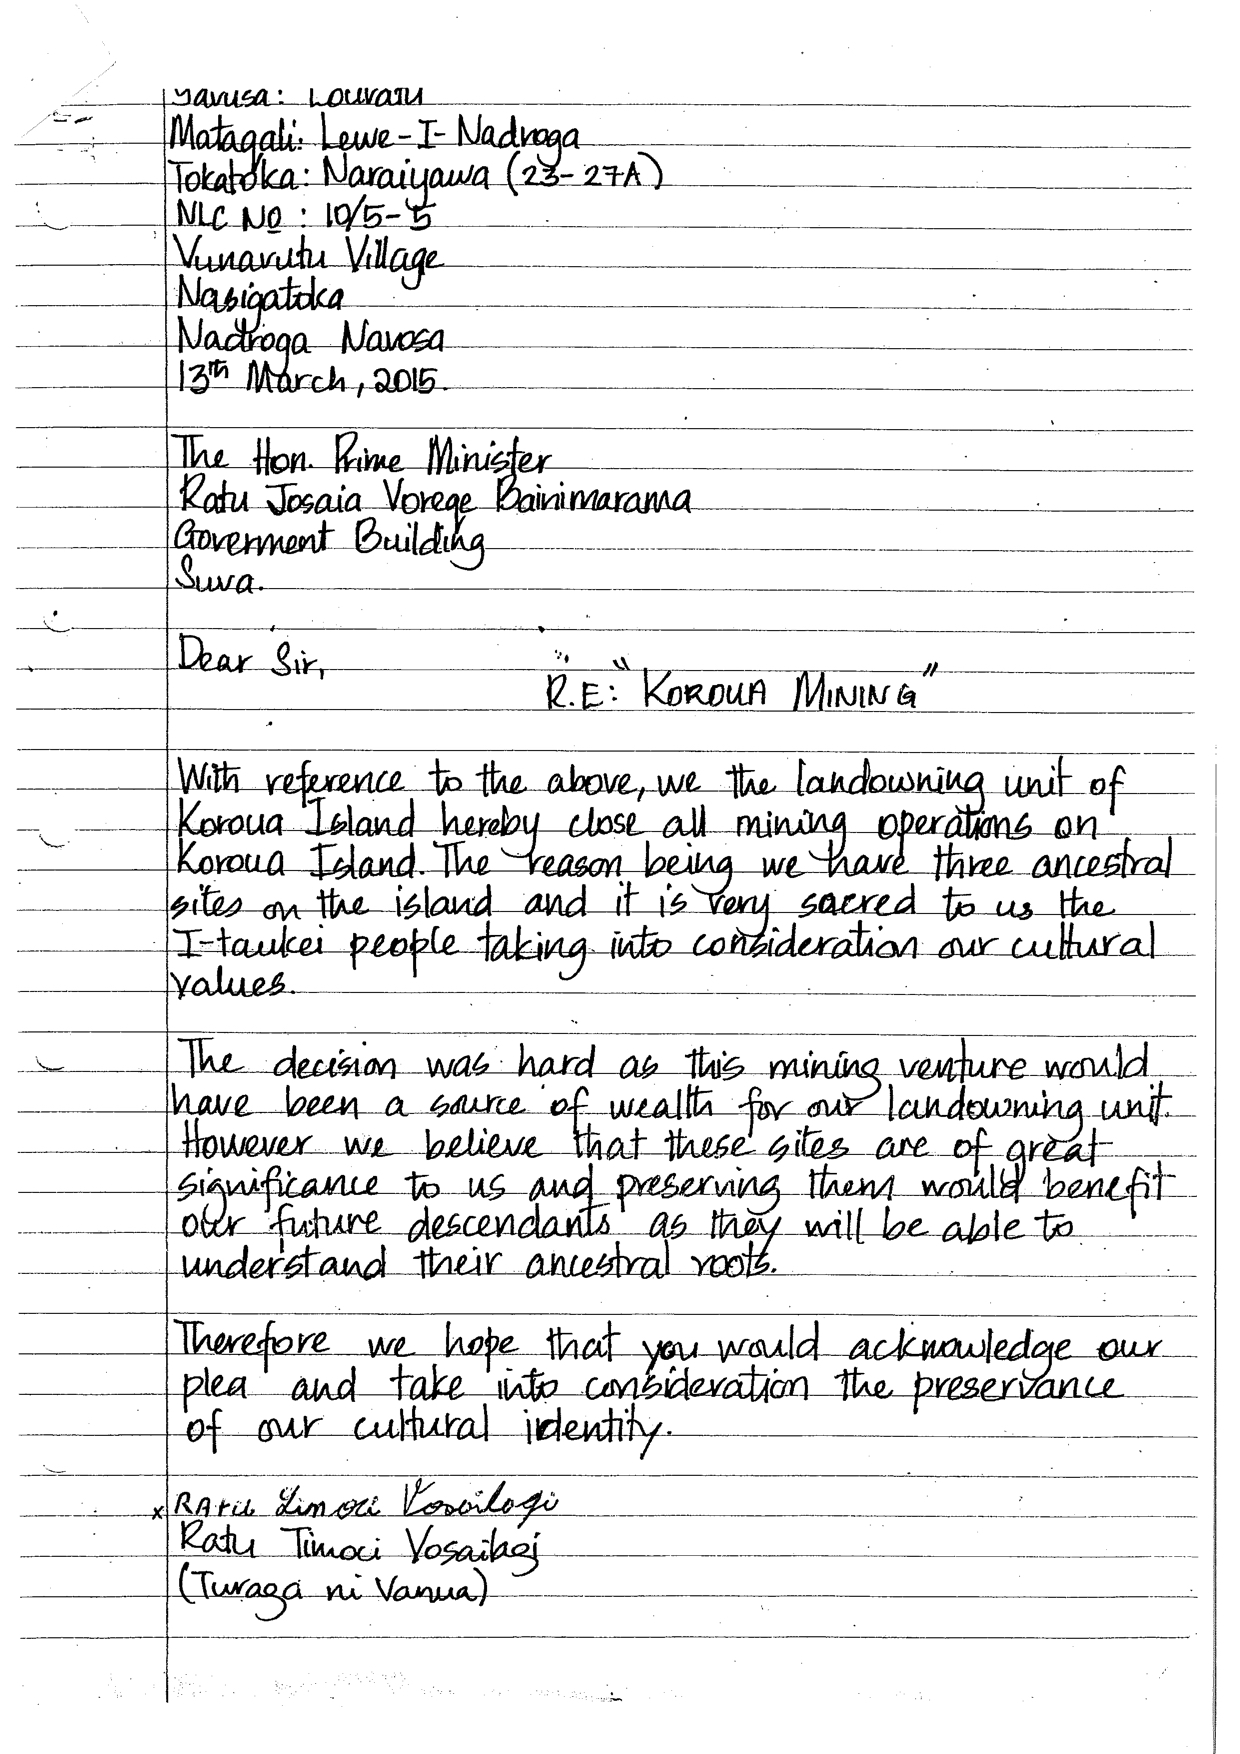 Yavusa: Louvatu
Mataqali: Lewe-I-Nadroga
Tokatoka: Naraiyawa (23-27A)
NLC No : 10/5-5
Vunavutu Village
Nasigatoka
Nadroga Navosa
13th March, 2015.
The Hon. Prime Minister
Ratu Josaia Voreqe Bainimarama
Goverment Building
Suva.
Dear Sir,
R.E: "KOROUA MINING"
With reference to the above, we the landowning unit of
Koroua Island hereby close all mining operations on
Koroua Island. The reason being we have three ancestral
sites on the island and it is very sacred to us the
I-taukei people taking into consideration our cultural
values.
The decision was hard as this mining venture would
have been a source of wealth for our landowning unit.
However we believe that these sites are of great
significance to us and preserving them would benefit
our future descendants as they will be able to
understand their ancestral roots.
Therefore we hope that you would acknowledge our
plea and take into consideration the preservance
of our cultural identity.
x Ratu Timoci Vosailagi
Ratu Timoci Vosailagi
(Turaga ni Vanua)